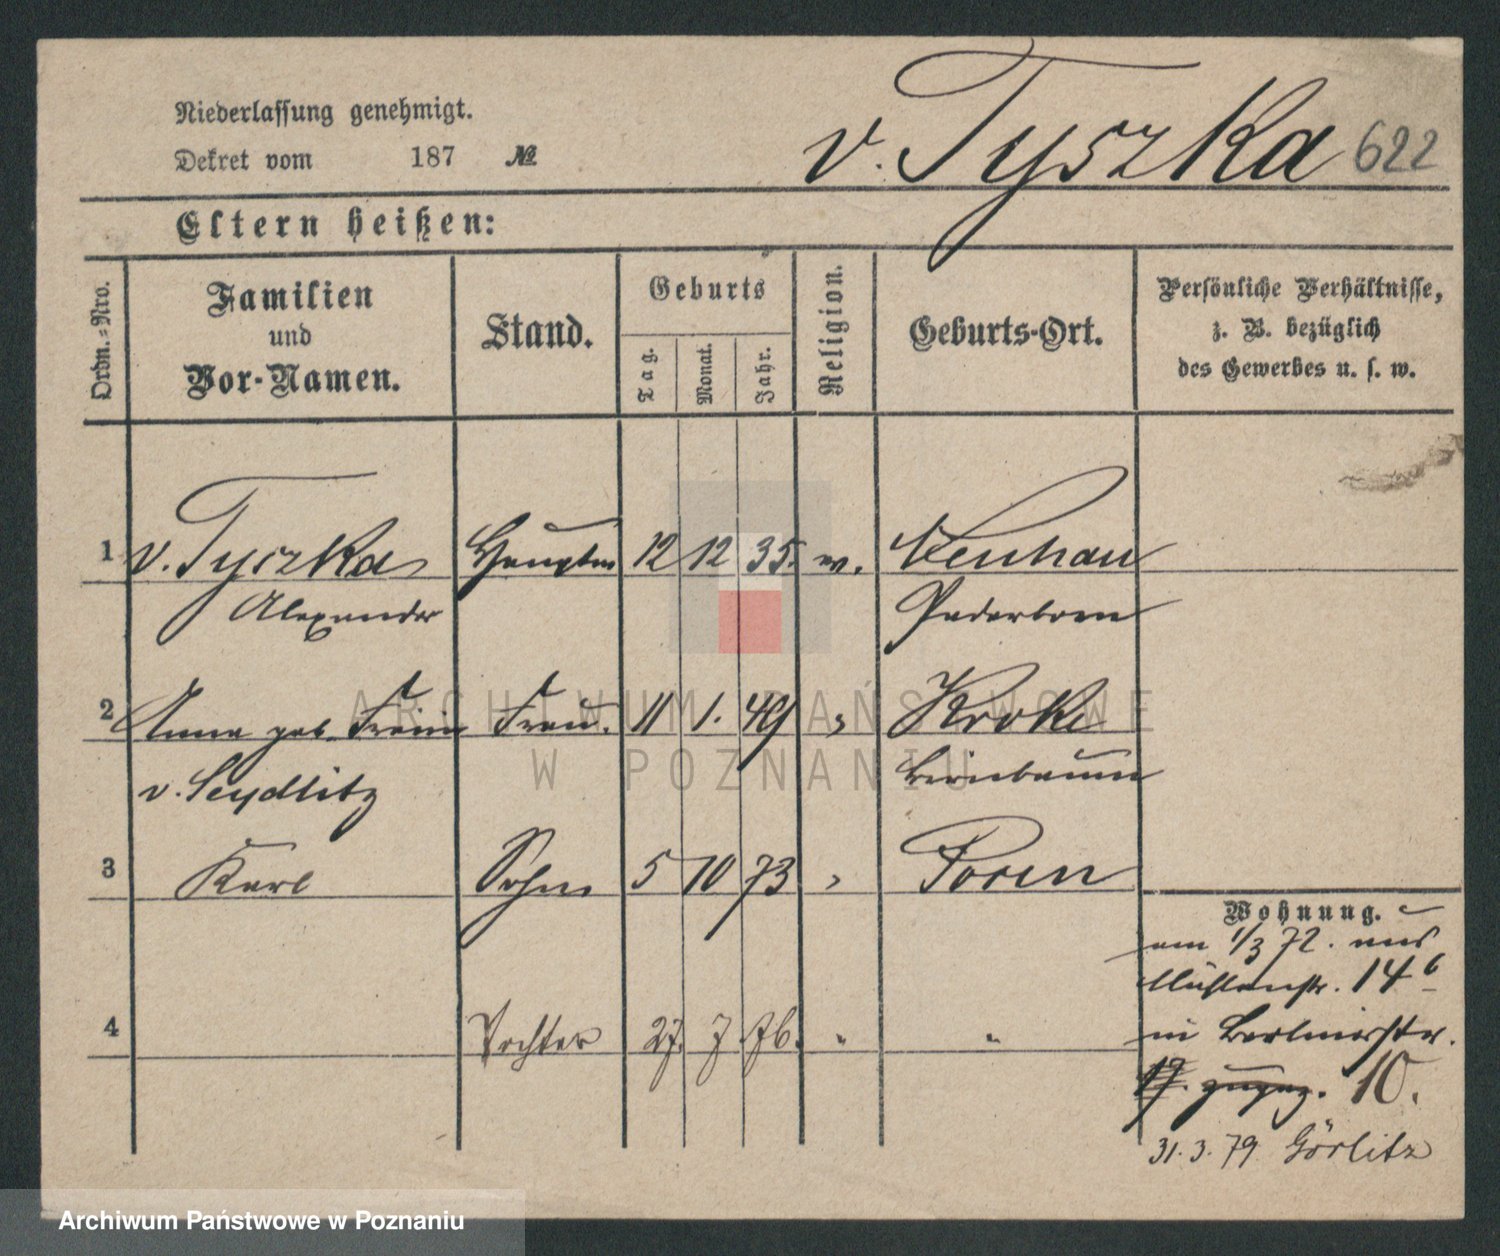 Niederlassung genehmigt.
Dekret vom 187 №
v. Tyszka 622
Eltern heißen:
Ordn.-Nro.
Familien
und
Vor-Namen.
Stand.
Geburts
Tag.
Monat.
Jahr.
Religion.
Geburts-Ort.
Persönliche Verhältnisse,
z. B. bezüglich
des Gewerbes u. s. w.
1 v. Tyszka Hauptm 12 12 35. ev. Neuhau
Alexander Paderborn
2 Anna geb. Freiin Frau. 11 1. 49 " Kroke
v. Seydlitz Birnbaum
3 Karl Sohn 5 10 73 " Posen
Wohnung.
am 1/3 72. aus
Mühlenstr. 14 b
4 Tochter 27. 7 76. " "
in Berlinerstr.
19. zugez. 10.
31.3.79 Görlitz
ARCHIWUM PAŃSTWOWE
W POZNANIU
Archiwum Państwowe w Poznaniu